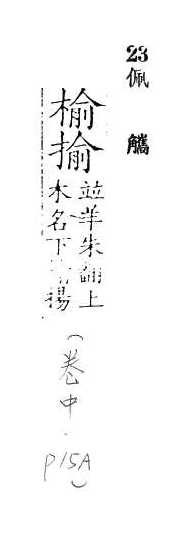 23 佩觿
榆揄
並羊朱翻上
木名下揚
(卷中.
p15A)